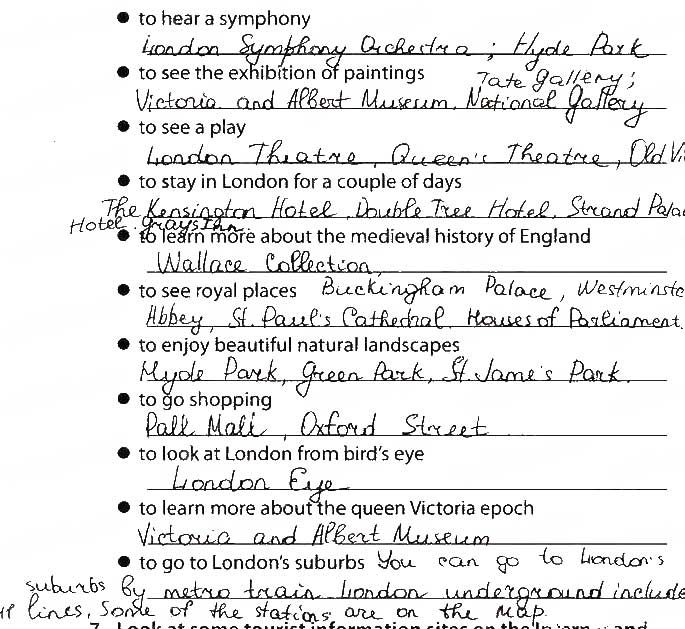 • to hear a symphony
London Symphony Orchestra; Hyde Park
• to see the exhibition of paintings Tate gallery;
Victoria and Albert Museum, National Gallery
• to see a play
London Theatre, Queen's Theatre, Old Vi
• to stay in London for a couple of days
The Kensington Hotel, Double Tree Hotel, Strand Pala
Hotel. Grays Inn.
• to learn more about the medieval history of England
Wallace Collection,
• to see royal places Buckingham Palace, Westminste
Abbey, St. Paul's Cathedral, Houses of Parliament.
• to enjoy beautiful natural landscapes
Hyde Park, Green Park, St. Jame's Park.
• to go shopping
Pall Mall, Oxford Street
• to look at London from bird's eye
London Eye
• to learn more about the queen Victoria epoch
Victoria and Albert Museum
• to go to London's suburbs You can go to London's
suburbs by metro train London underground include
lines. Some of the stations are on the map.
7. Look at some tourist information sites on the and